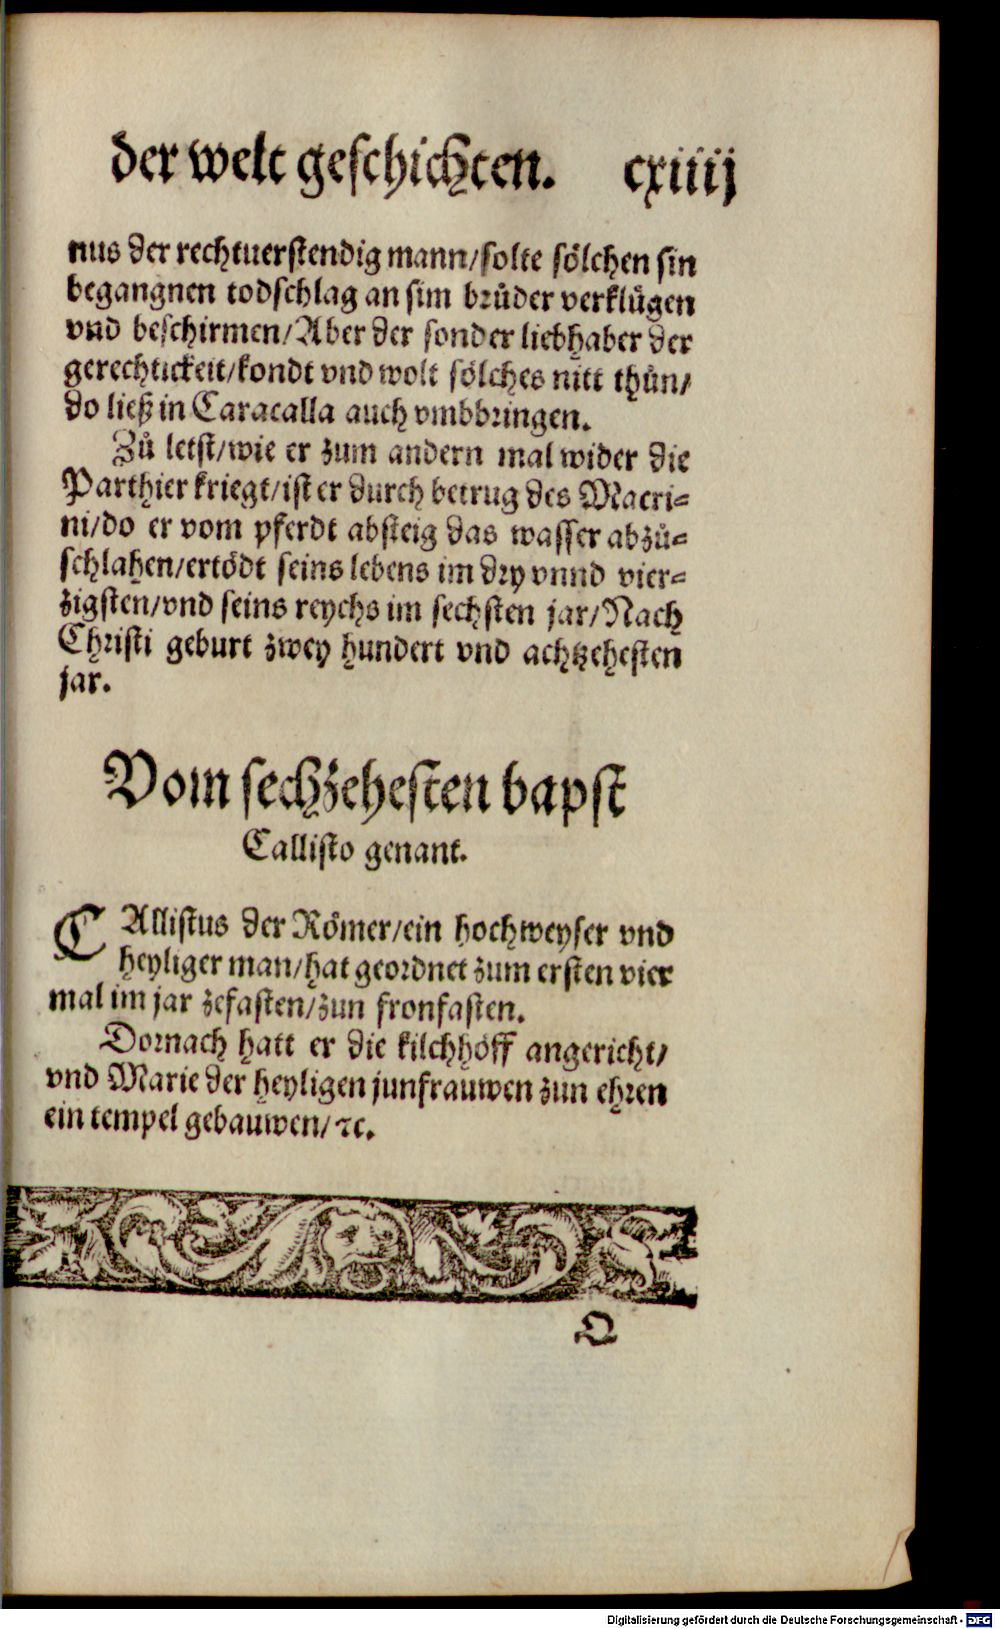 der welt geschichten. cxiiij
nus der rechtuerstendig mann/solte sölchen sin
begangnen todschlag an sim brůder verklůgen
vnd beschirmen/Aber der sonder liebhaber der
gerechtickeit/kondt vnd wolt sölches nitt thůn/
do ließ in Caracalla auch vmbbringen.
Zů letst/wie er zum andern mal wider die
Parthier kriegt/ist er durch betrug des Macri-
ni/do er vom pferdt absteig das wasser abzů-
schlahen/ertödt seins lebens im dry vnnd vier-
zigsten/vnd seins reychs im sechsten jar/Nach
Christi geburt zwey hundert vnd achtzehesten
jar.
Vom sechzehesten bapst
Callisto genant.
CAllistus der Römer/ein hochweyser vnd
heyliger man/hat geordnet zum ersten vier
mal im jar zefasten/zun fronfasten.
Dornach hatt er die kilchhöff angericht/
vnd Marie der heyligen junfrauwen zun ehren
ein tempel gebauwen/ ⁊c.
Q
Digitalisierung gefördert durch die Deutsche Forschungsgemeinschaft - DFG